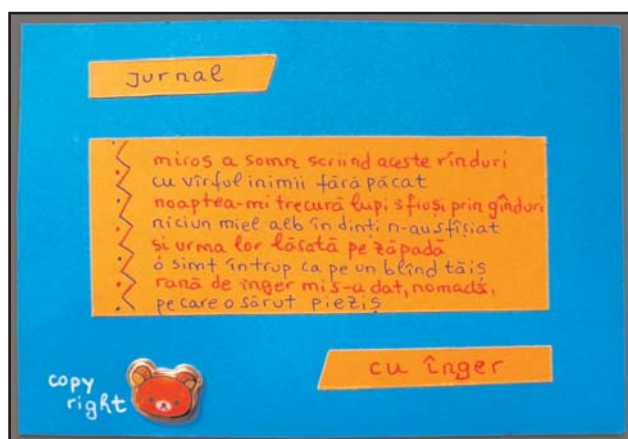 Jurnal
miros a somn scriind aceste rînduri
cu vîrful inimii fără păcat
noaptea-mi trecură lupi sfioși prin gînduri
niciun miel alb în dinți n-au sfîșiat
și urma lor lăsată pe zăpadă
o simt în trup ca pe un blînd tăiș
rană de înger mi s-a dat, nomadă,
pe care o sărut pieziș
cu înger
copy
right